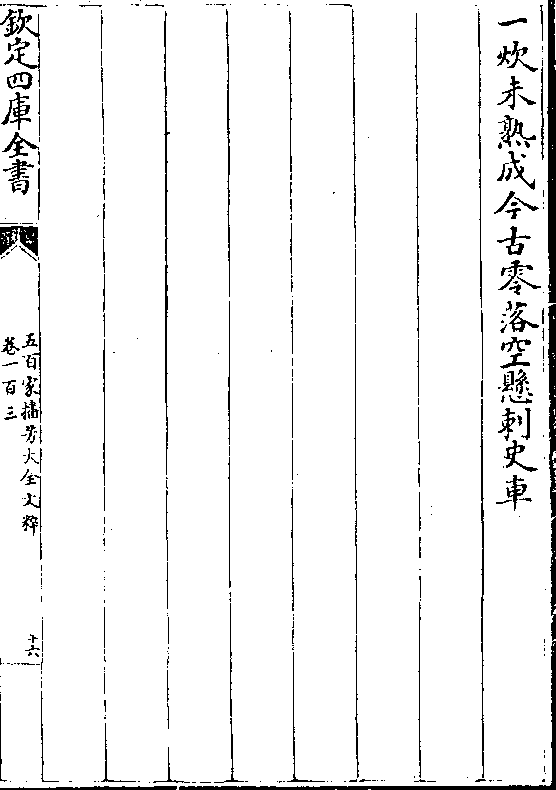 一炊未熟成今古零落空懸刺史車
欽定四庫全書
五百家播芳大全文粹
卷一百三
十六